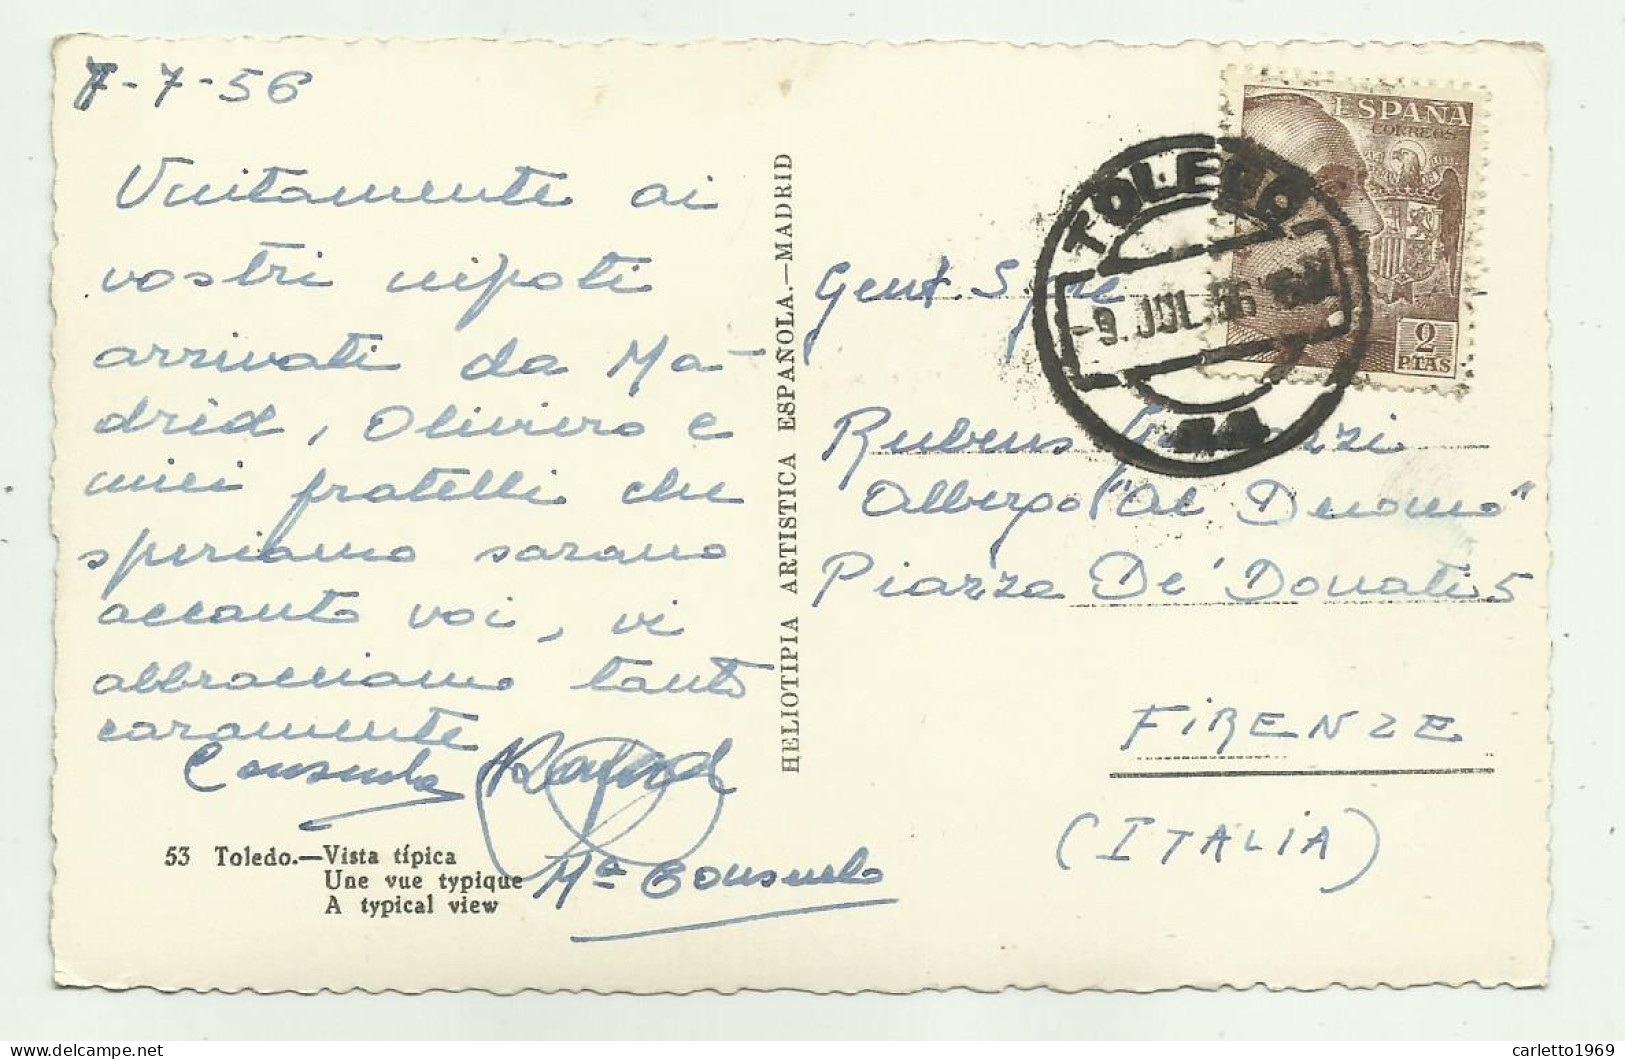 7-7-56
Unitamente ai
vostri nipoti
arrivati da Ma-
drid, Oliviero e
miei fratelli che
speriamo sarano
accanto voi, vi
abbracciamo tanto
caramente
Consuelo
Mª Consuelo
53 Toledo.—Vista típica
Une vue typique
A typical view
HELIOTIPIA ARTISTICA ESPAÑOLA.—MADRID
ESPAÑA
CORREOS
2
PTAS
TOLEDO
-9.JUL.56
Gent. S
Rubens
Albergo "Al Duomo"
Piazza De' Donati 5
FIRENZE
(ITALIA)
carletto1969
delcampe.net